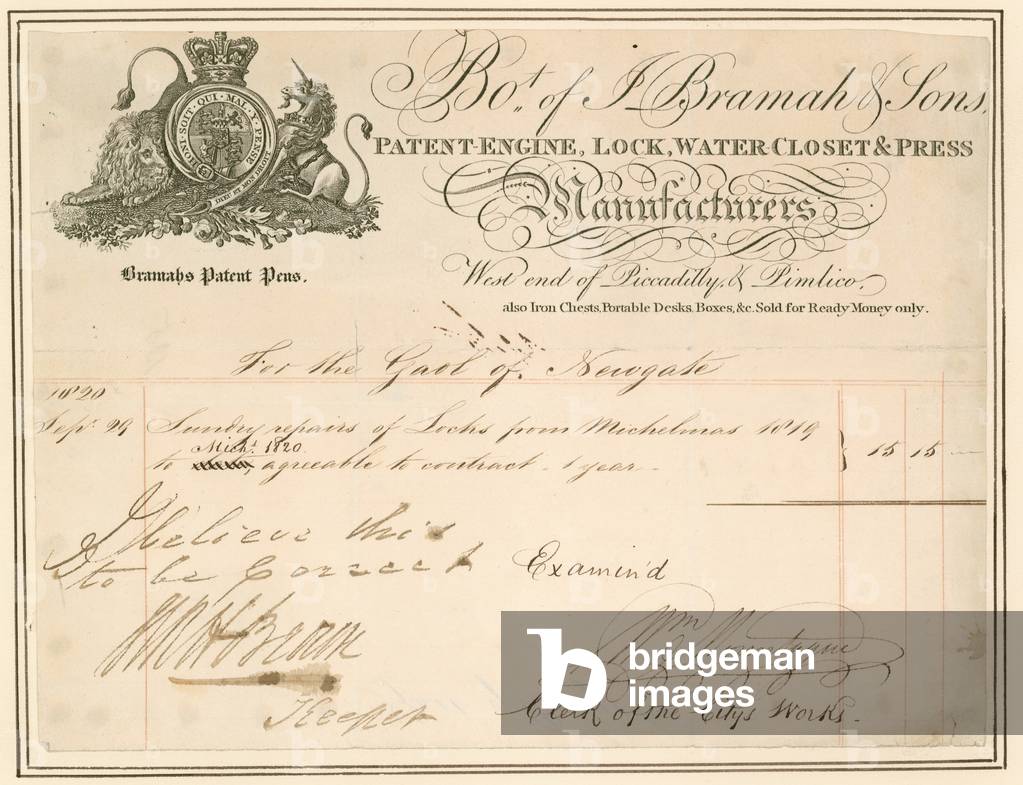 HONI · SOIT · QUI · MAL · Y · PENSE
DIEU ET MON DROIT
Bo.t of J Bramah & Sons,
PATENT-ENGINE, LOCK, WATER-CLOSET & PRESS
Manufacturers
Bramahs Patent Pens.
West end of Piccadilly, & Pimlico,
also Iron Chests, Portable Desks, Boxes, &c. Sold for Ready Money only.
For the Gaol of Newgate
1820
Sepr. 29 Sundry repairs of Locks from Michelmas 1819
Michs. 1820
to agreeable to contract - 1 year - 15 15 —
I believe this
to be Correct
Examin'd
Brown
Wm
Keeper
Clerk of the Citys Works -
bridgeman
images
b